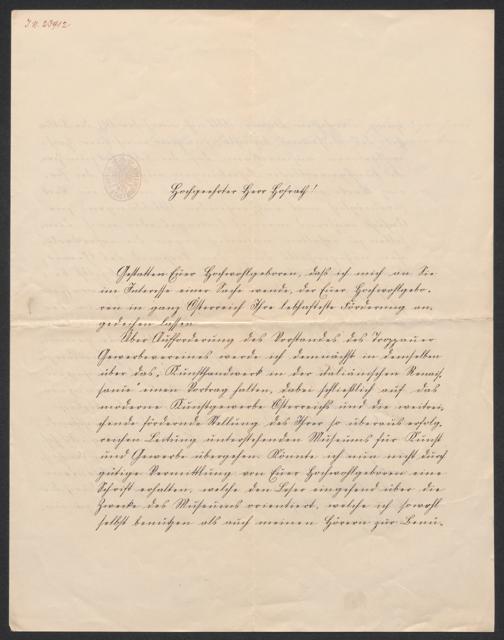 I. N. 23912
Hochgeehrter Herr Hofrath!
Gestatten Euer Hochwohlgeboren, dass ich mich an Sie
im Interesse einer Sache wende, der Euer Hochwohlgebo-
ren in ganz Österreich Ihre lebhafteste Förderung an-
gedeihen lassen.
Über Aufforderung des Vorstandes des Troppauer
Gewerbevereines werde ich demnächst in demselben
über das „Kunsthandwerk in der italiänischen Renais-
sance" einen Vortrag halten, dabei schließlich auf das
moderne Kunstgewerbe Österreichs und die weitrei-
chende fördernde Stellung des Ihrer so überaus erfolg-
reichen Leitung unterstehenden Museums für Kunst
und Gewerbe übergehen. Könnte ich nun nicht durch
gütige Vermittlung von Euer Hochwohlgeboren eine
Schrift erhalten, welche den Leser eingehend über die
Zwecke des Museums orientiert, welche ich sowohl
selbst benützen als auch meinen Hörern zur Benü-